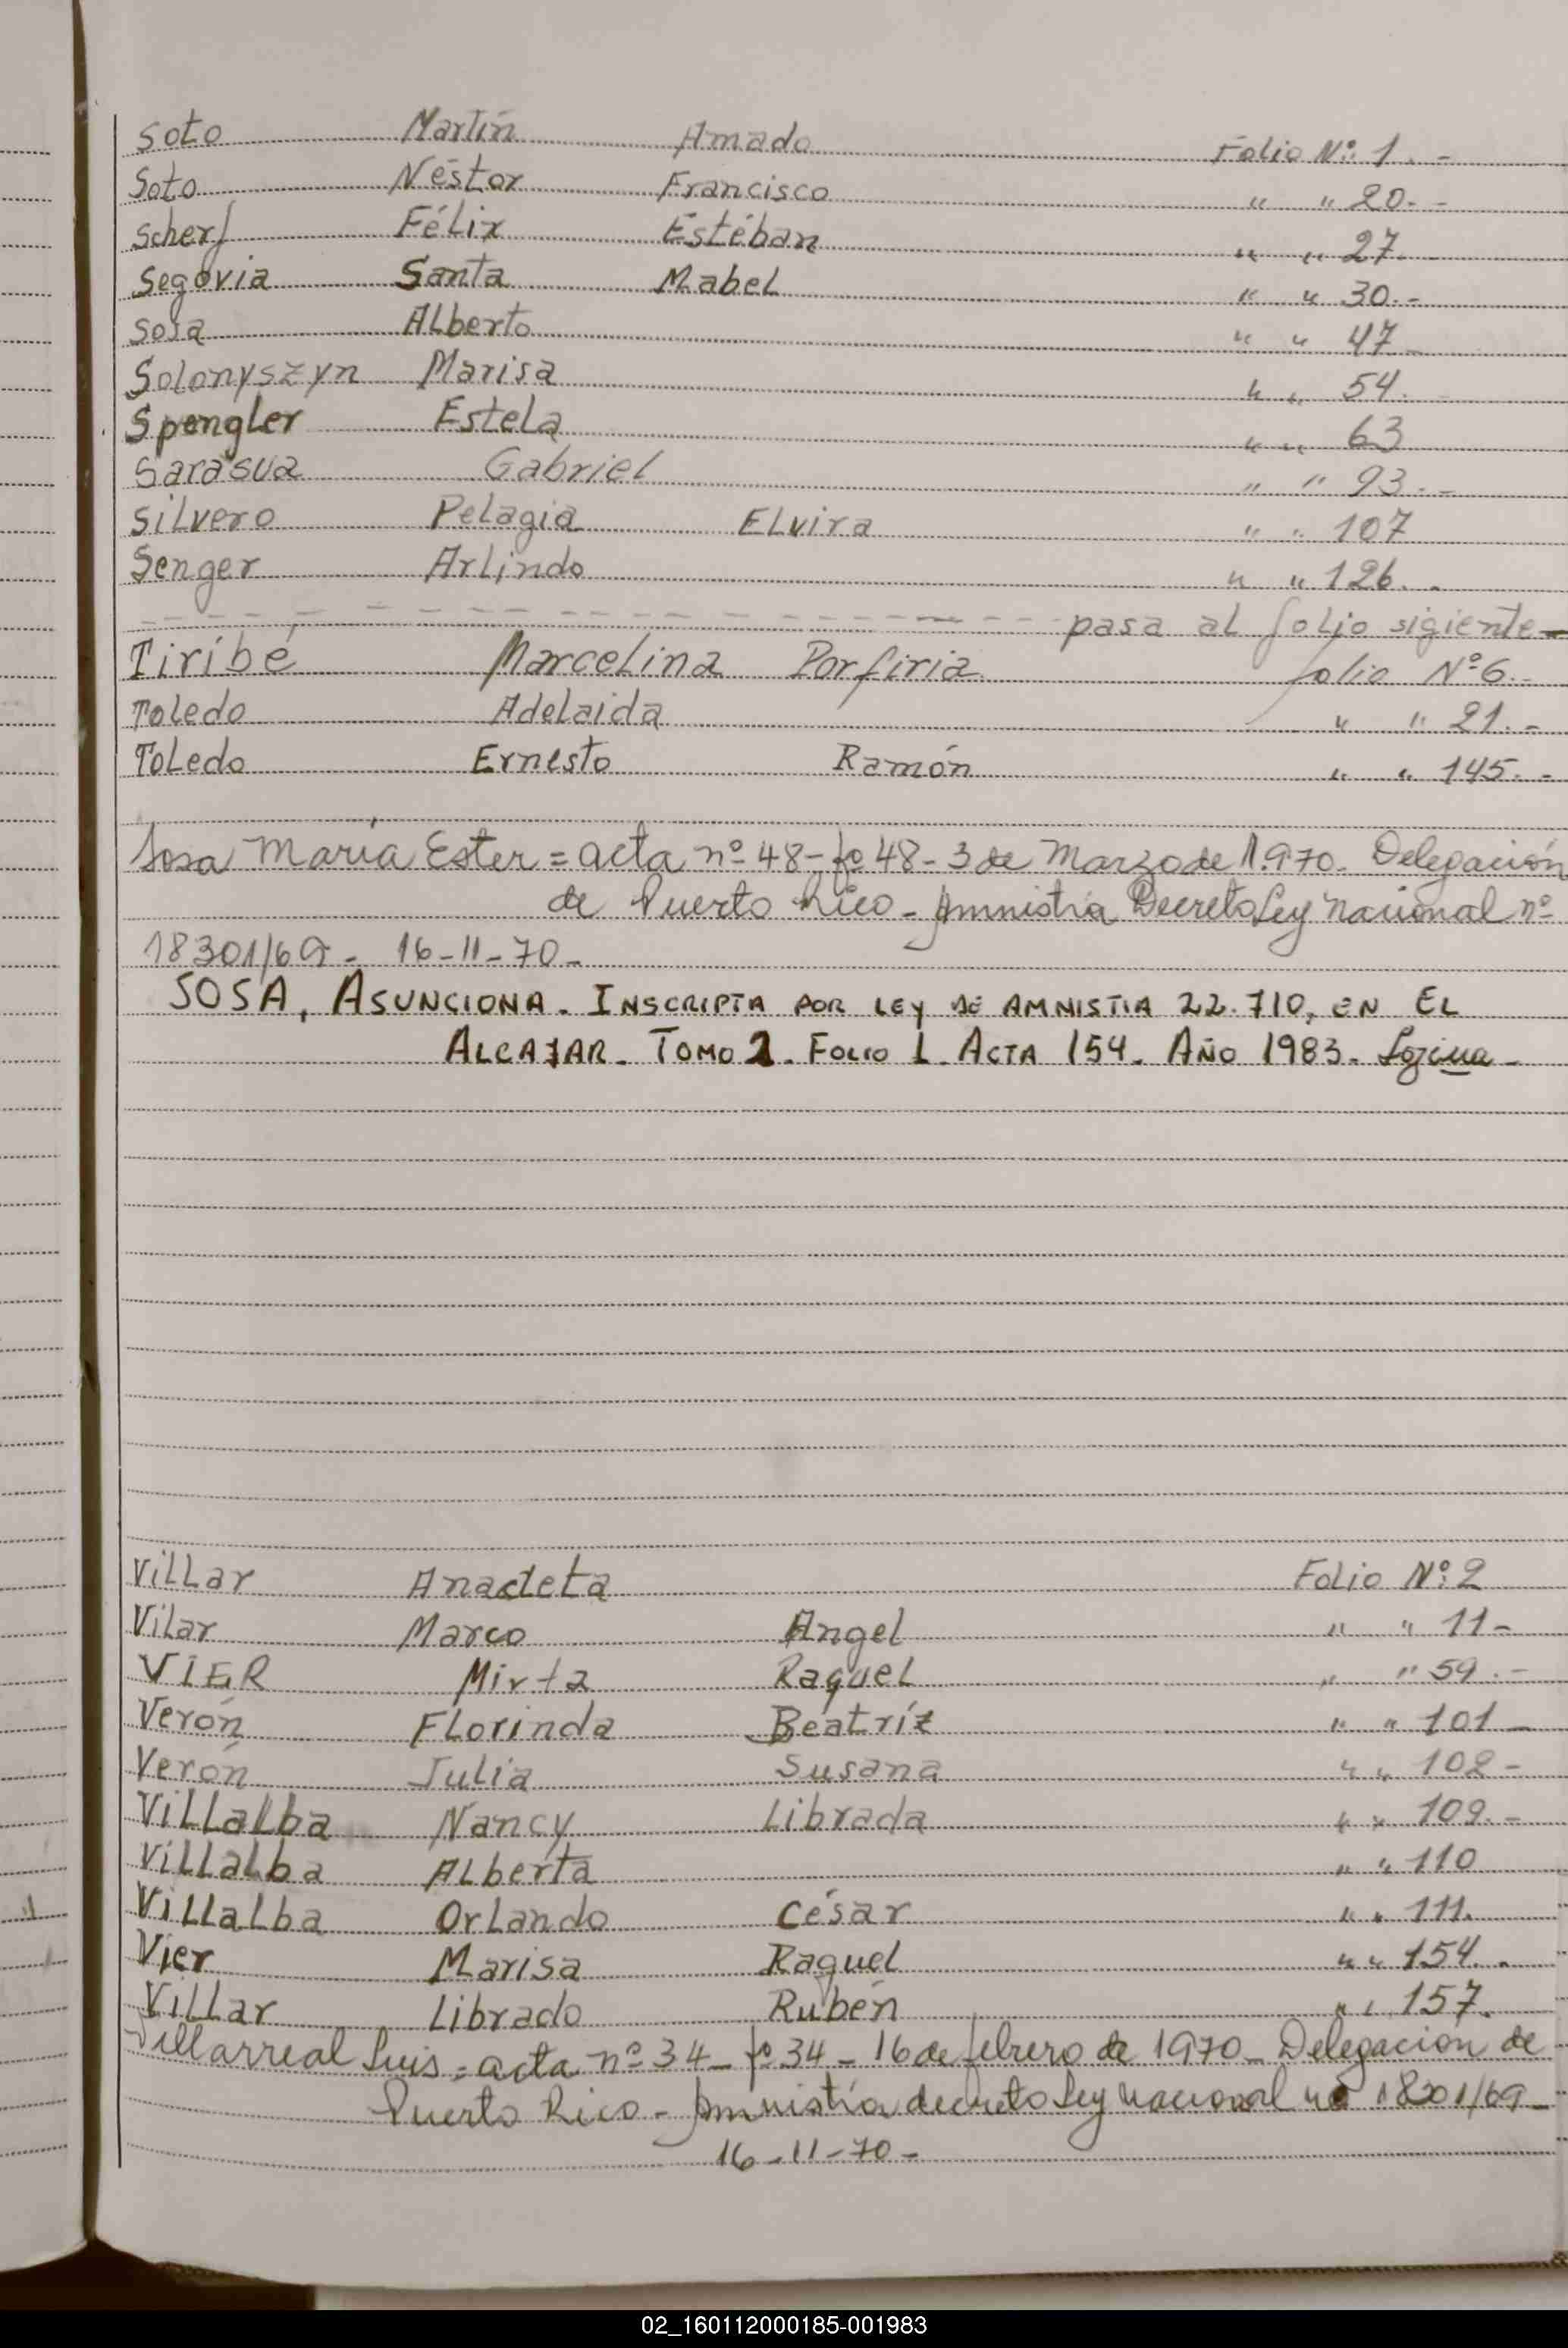 Soto Martín Amado Folio Nº: 1. -
Soto Néstor Francisco " " 20. -
Scherf Félix Estéban " " 27.
Segovia Santa Mabel " " 30. -
Sosa Alberto " " 47 -
Solonyszyn Marisa " " 54. -
Spengler Estela " " 63
Sarasua Gabriel " " 93. -
Silvero Pelagia Elvira " " 107
Senger Arlindo " " 126. -
pasa al folio sigiente -
Tiribé Marcelina Porfiria folio Nº 6. -
Toledo Adelaida " " 21. -
Toledo Ernesto Ramón " " 145. -
Sosa María Ester = acta nº 48 - fº 48 - 3 de Marzo de 1.970. Delegación
de Puerto Rico - Amnistía Decreto Ley nacional nº
18301/69 - 16-11-70 -
SOSA, ASUNCIONA. INSCRIPTA POR LEY DE AMNISTIA 22.710, EN EL
ALCAZAR - TOMO 2. FOLIO 1. ACTA 154. AÑO 1983.
Villar Anacleta Folio Nº: 2
Vilar Marco Angel " " 11 -
VIER Mirta Raquel " " 59. -
Verón Florinda Beatríz " " 101 -
Verón Julia Susana " " 102 -
Villalba Nancy Librada " " 109. -
Villalba Alberta " " 110
Villalba Orlando César " " 111.
Vier Marisa Raquel " " 154. .
Villar Librado Rubén " " 157.
Villarreal Luis = acta nº 34 - fº 34 - 16 de febrero de 1970 - Delegación de
Puerto Rico - Amnistía decreto Ley nacional nº 18301/69 -
16-11-70 -
02_160112000185-001983